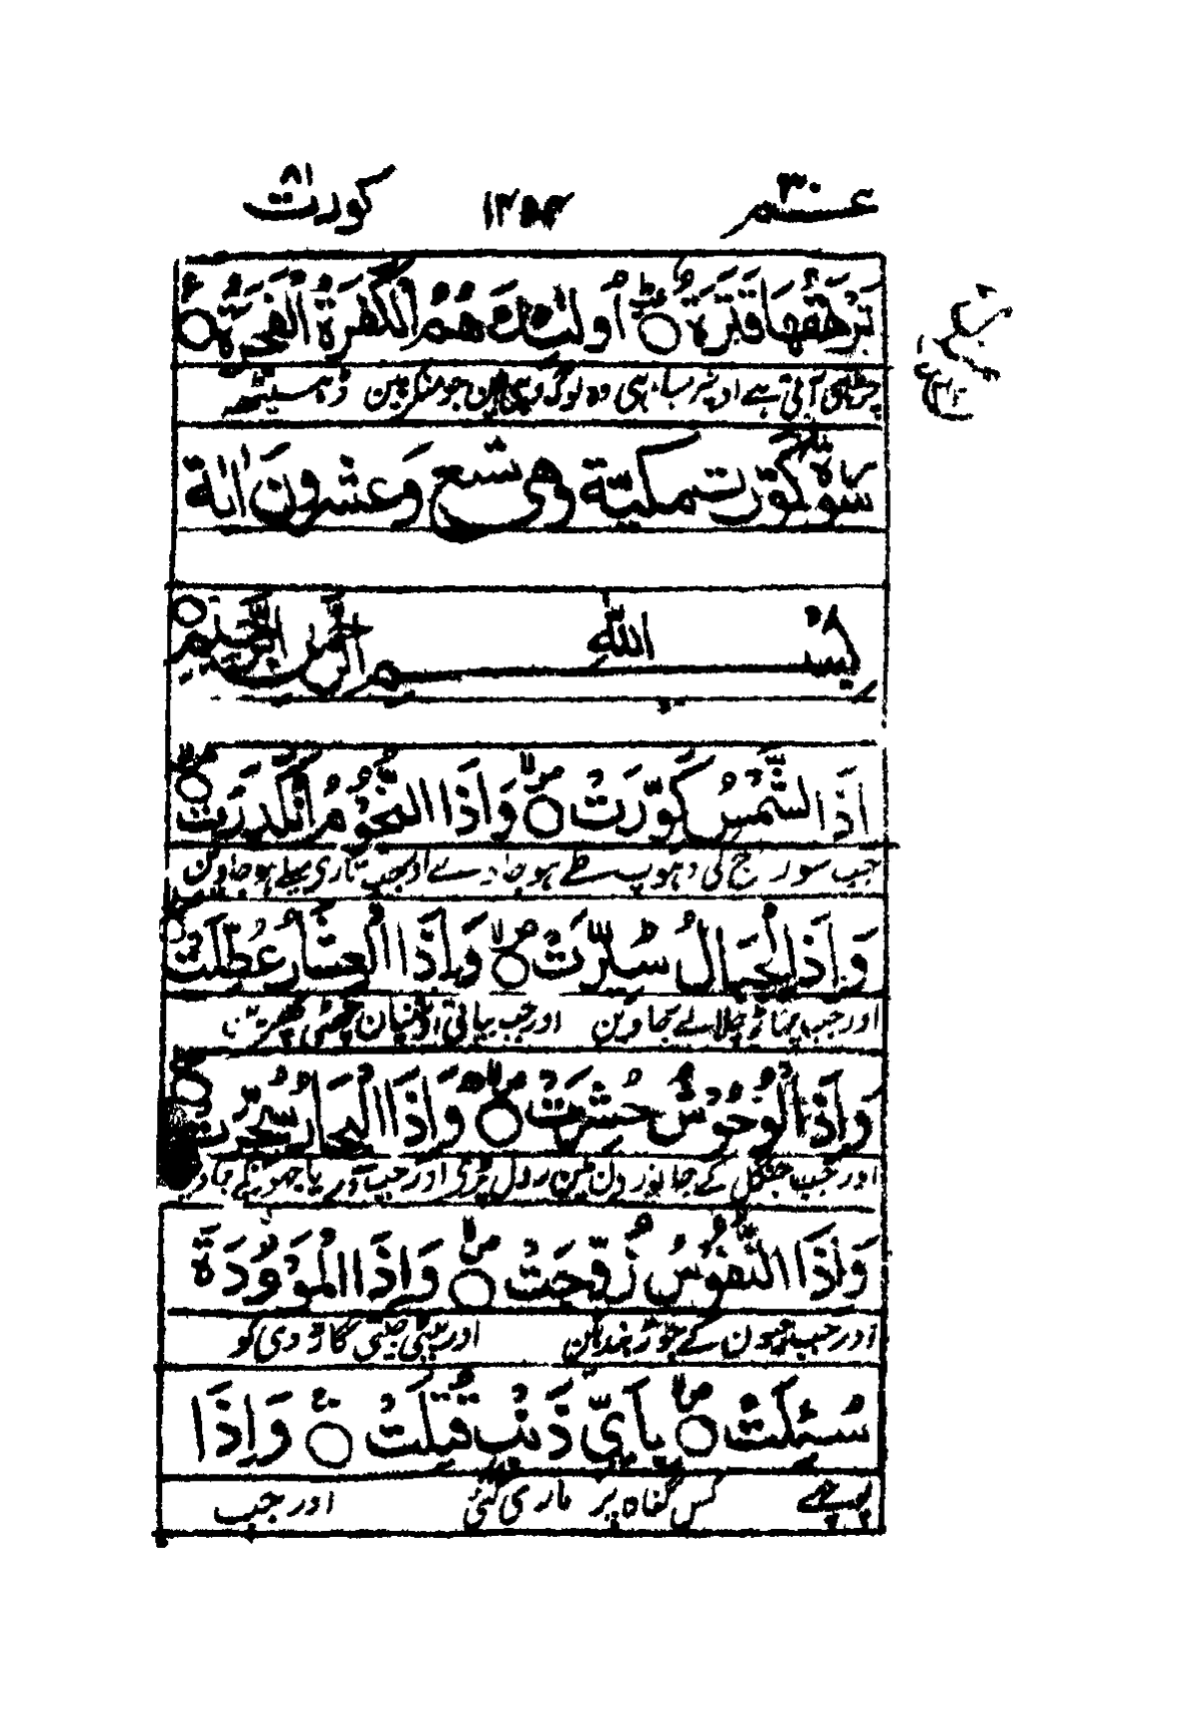 عـــم ٣٠ ١٢٥٤ كورت ٨١
تَرْهَقُهَا قَتَرَةٌ ۝ أُولٰٓئِكَ هُمُ الْكَفَرَةُ الْفَجَرَةُ ۝
چڑھی آتی ہے اونپر سیاہی وہ لوگ وہی ہین جو منکر ہین ڈہیٹھہ
سورة كورت مكية وهى تسع وَعشرون اٰية
بِسْمِ اللّٰهِ الرَّحْمٰنِ الرَّحِيْمِ ۝
اِذَا الشَّمْسُ كُوِّرَتْ ۝ وَاِذَا النُّجُوْمُ انْكَدَرَتْ ۝
جب سورج کی دہوپ طے ہو جاوے اور جب تاری میلے ہو جاوین
وَاِذَا الْجِبَالُ سُيِّرَتْ ۝ وَاِذَا الْعِشَارُ عُطِّلَتْ ۝
اور جب پہاڑ چلائے جاوین اور جب بیاتی اونٹنیان چھٹی پھرین
وَاِذَا الْوُحُوْشُ حُشِرَتْ ۝ وَاِذَا الْبِحَارُ سُجِّرَتْ ۝
اور جب جنگل کے جانور دن مین رول پڑی اور جب دریا جھونکے جاوین
وَاِذَا النُّفُوْسُ زُوِّجَتْ ۝ وَاِذَا الْمَوْءُدَةُ
اور جب جیون کے جوڑ بندہین اور بیٹی جیتی گاڑ دی کو
سُئِلَتْ ۝ بِاَيِّ ذَنْبٍ قُتِلَتْ ۝ وَاِذَا
پوچھے کس گناہ پر ماری گئی اور جب